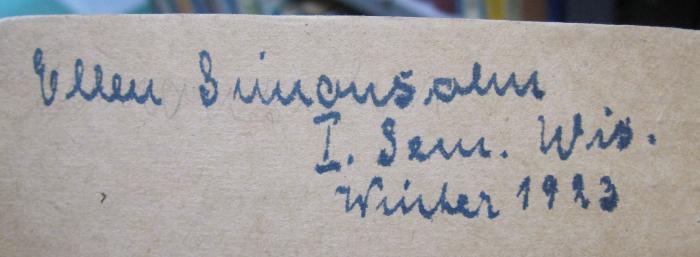 Ellen Simonsohn
I. Sem. Wis.
Winter 1923